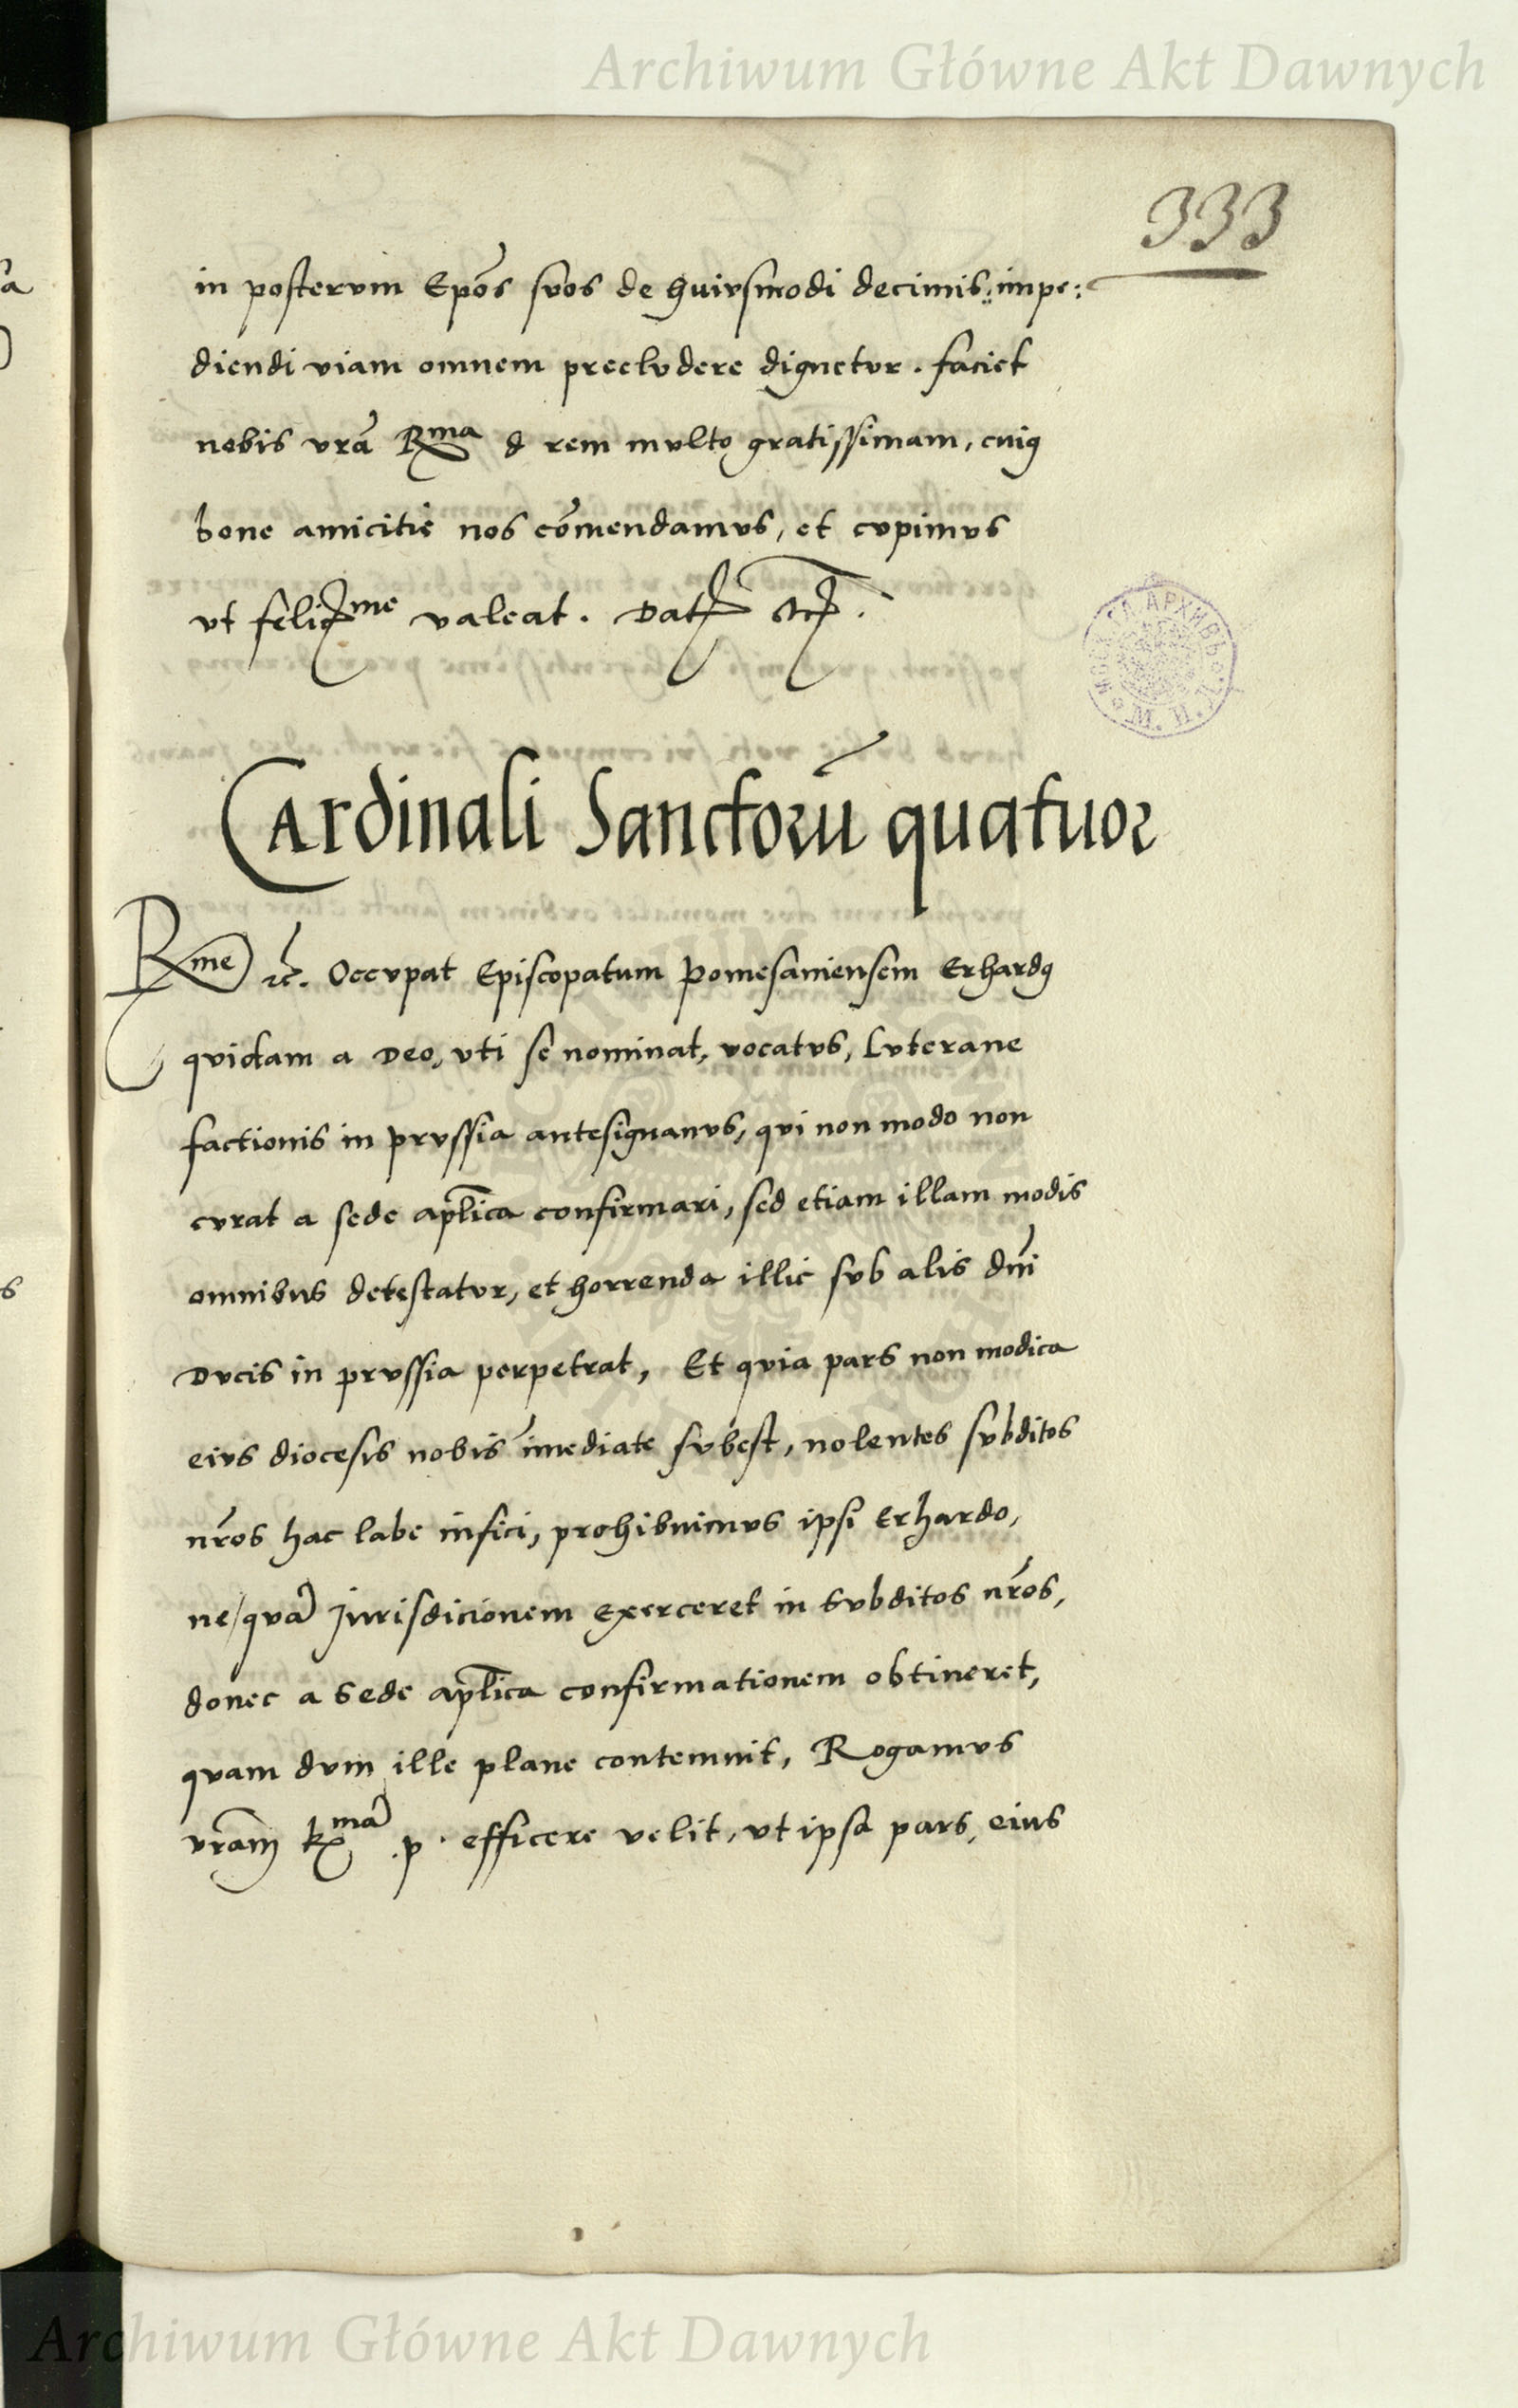 Archiwum Główne Akt Dawnych
333
in posterum Ep̄os suos de huiusmodi decimis impe:
diendi viam omnem precludere dignetur. faciet
nobis vr̄a Rma d rem multo gratissimam, cuiꝯ
bone amicitie nos cōmendamus, et cupimus
vt felicme valeat. Dat
Cardinali Sanctorū quatuor
Rme etc. Occupat Episcopatum Pomesaniensem Erhardꝯ
quidam a Deo, vti se nominat, vocatus, Luterane
factionis in prussia antesignanus, qui non modo non
curat a sede ap̄lica confirmari, sed etiam illam modis
omnibus detestatur, et horrenda illic sub alis dn̄i
Ducis in prussia perpetrat, Et quia pars non modica
eius diocesis nobis īmediate subest, nolentes subditos
nr̄os hac labe infici, prohibuimus ipsi Erhardo,
ne quā Jurisdicionem exerceret in Subditos nr̄os,
donec a Sede ap̄lica confirmationem obtineret,
quam dum ille plane contemnit, Rogamus
vr̄am Rmā .p. efficere velit, vt ipsa pars eius
Archiwum Główne Akt Dawnych